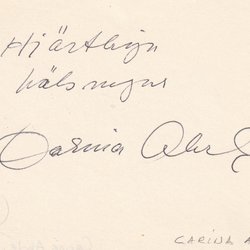 Hjärtliga
hälsningar
Carina
CARINA A